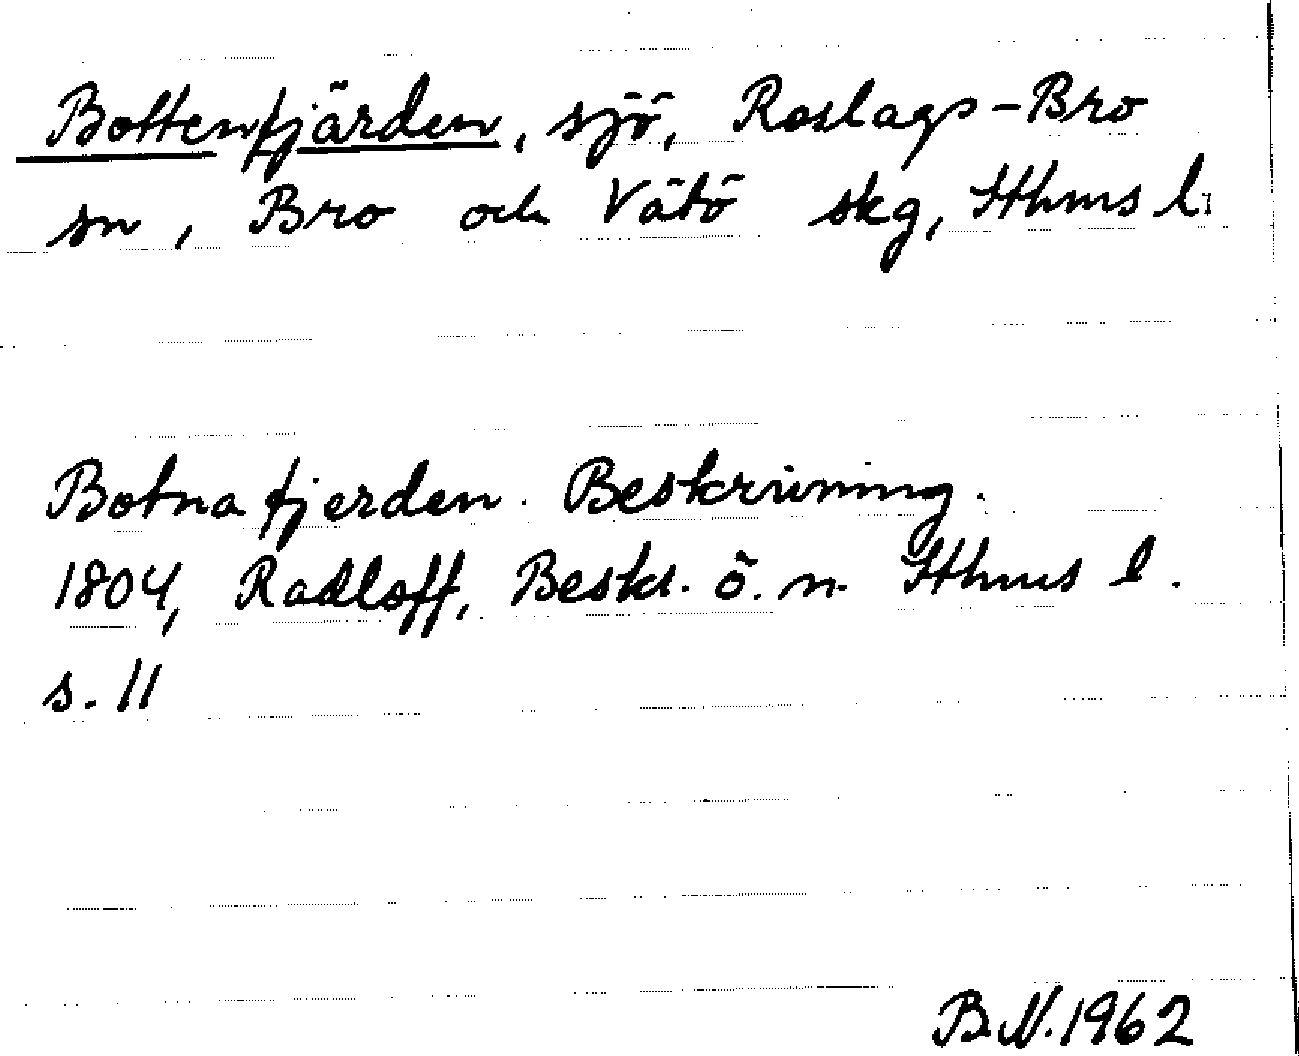 Bottenfjärden, sjö, Roslags-Bro
sn, Bro och Vätö skg, Sthms l.
Botnafjerden. Beskrivning.
1804, Radloff, Beskr. ö. n. Sthms l.
s. 11
B.N. 1962